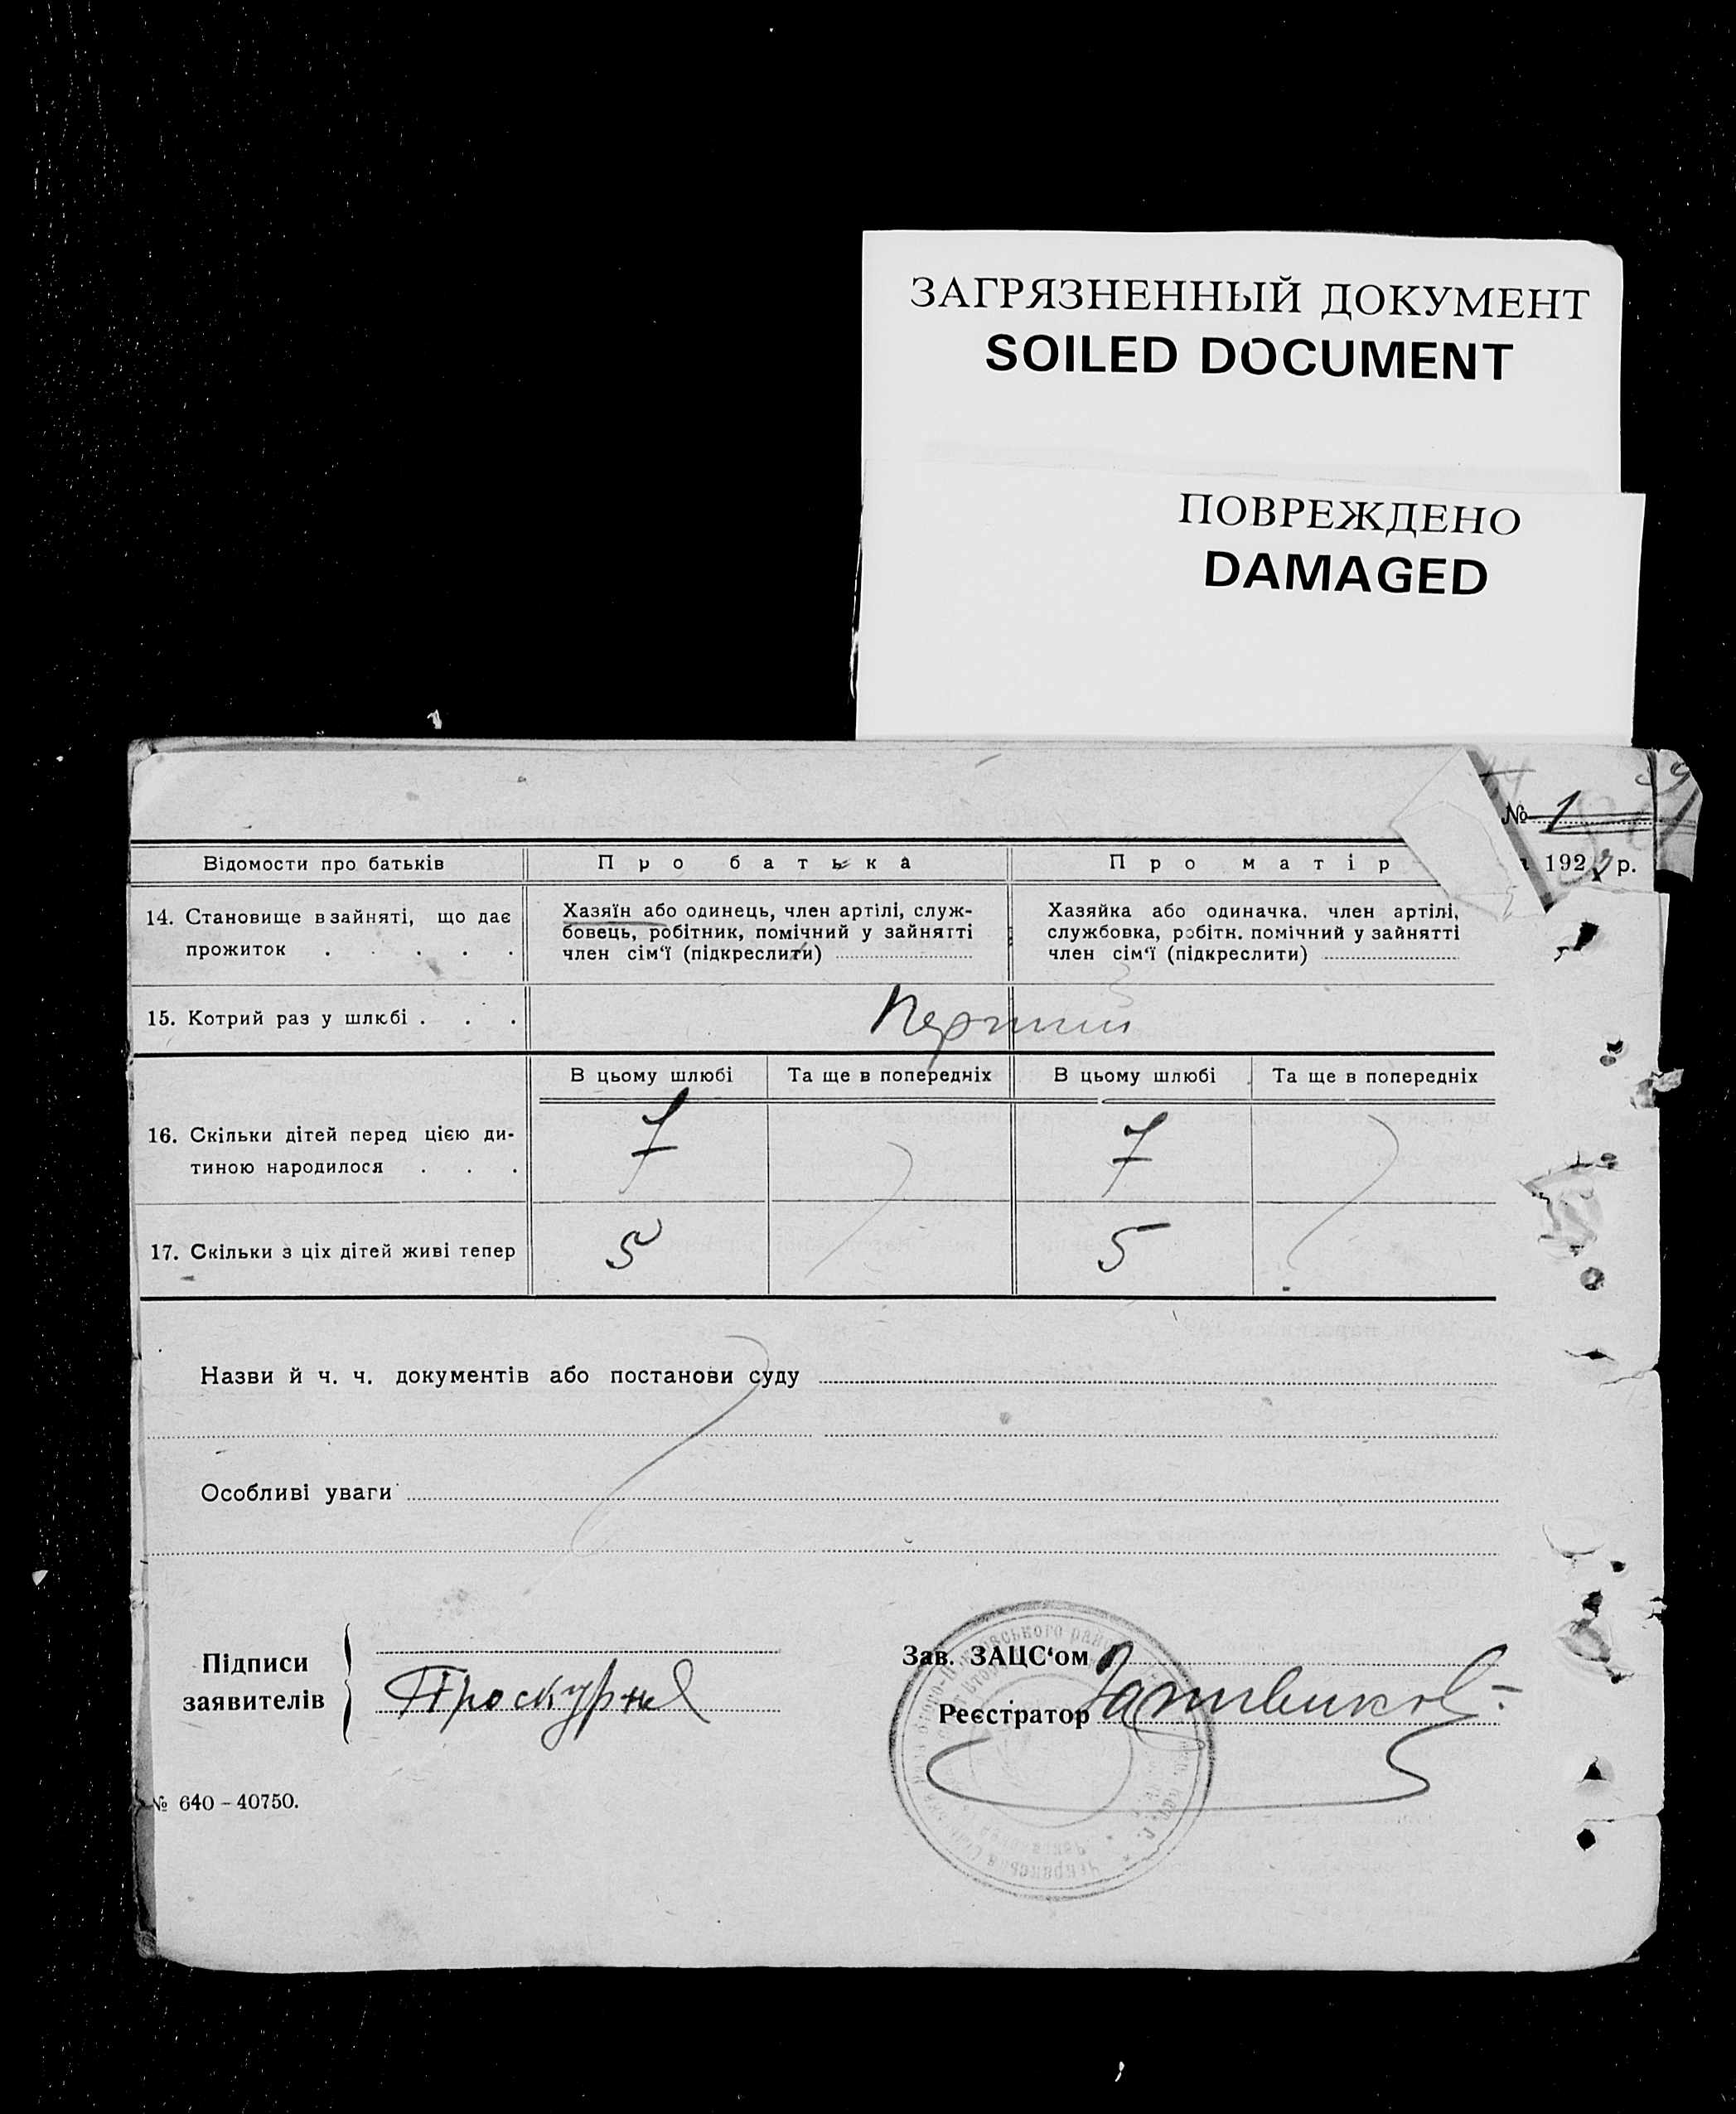 ЗАГРЯЗНЕННЫЙ ДОКУМЕНТ
SOILED DOCUMENT
ПОВРЕЖДЕНО
DAMAGED
№ 1
192 р.
Відомости про батьків
Про батька
Про матір
14. Становище в зайняті, що дає
прожиток . . . . .
Хазяїн або одинець, член артілі, служ-
бовець, робітник, помічний у зайнятті
член сім‘ї (підкреслити)
Хазяйка або одиначка, член артілі,
службовка, робітн. помічний у зайнятті
член сім‘ї (підкреслити)
15. Котрий раз у шлюбі . . .
Перший
В цьому шлюбі
Та ще в попередніх
В цьому шлюбі
Та ще в попередніх
16. Скільки дітей перед цією ди-
тиною народилося . . .
7
7
17. Скільки з ціх дітей живі тепер
5
5
Назви й ч. ч. документів або постанови суду
Особливі уваги
Підписи
заявителів
Проскурня
Зав. ЗАЦС‘ом
Реєстратор
№ 640 – 40750.